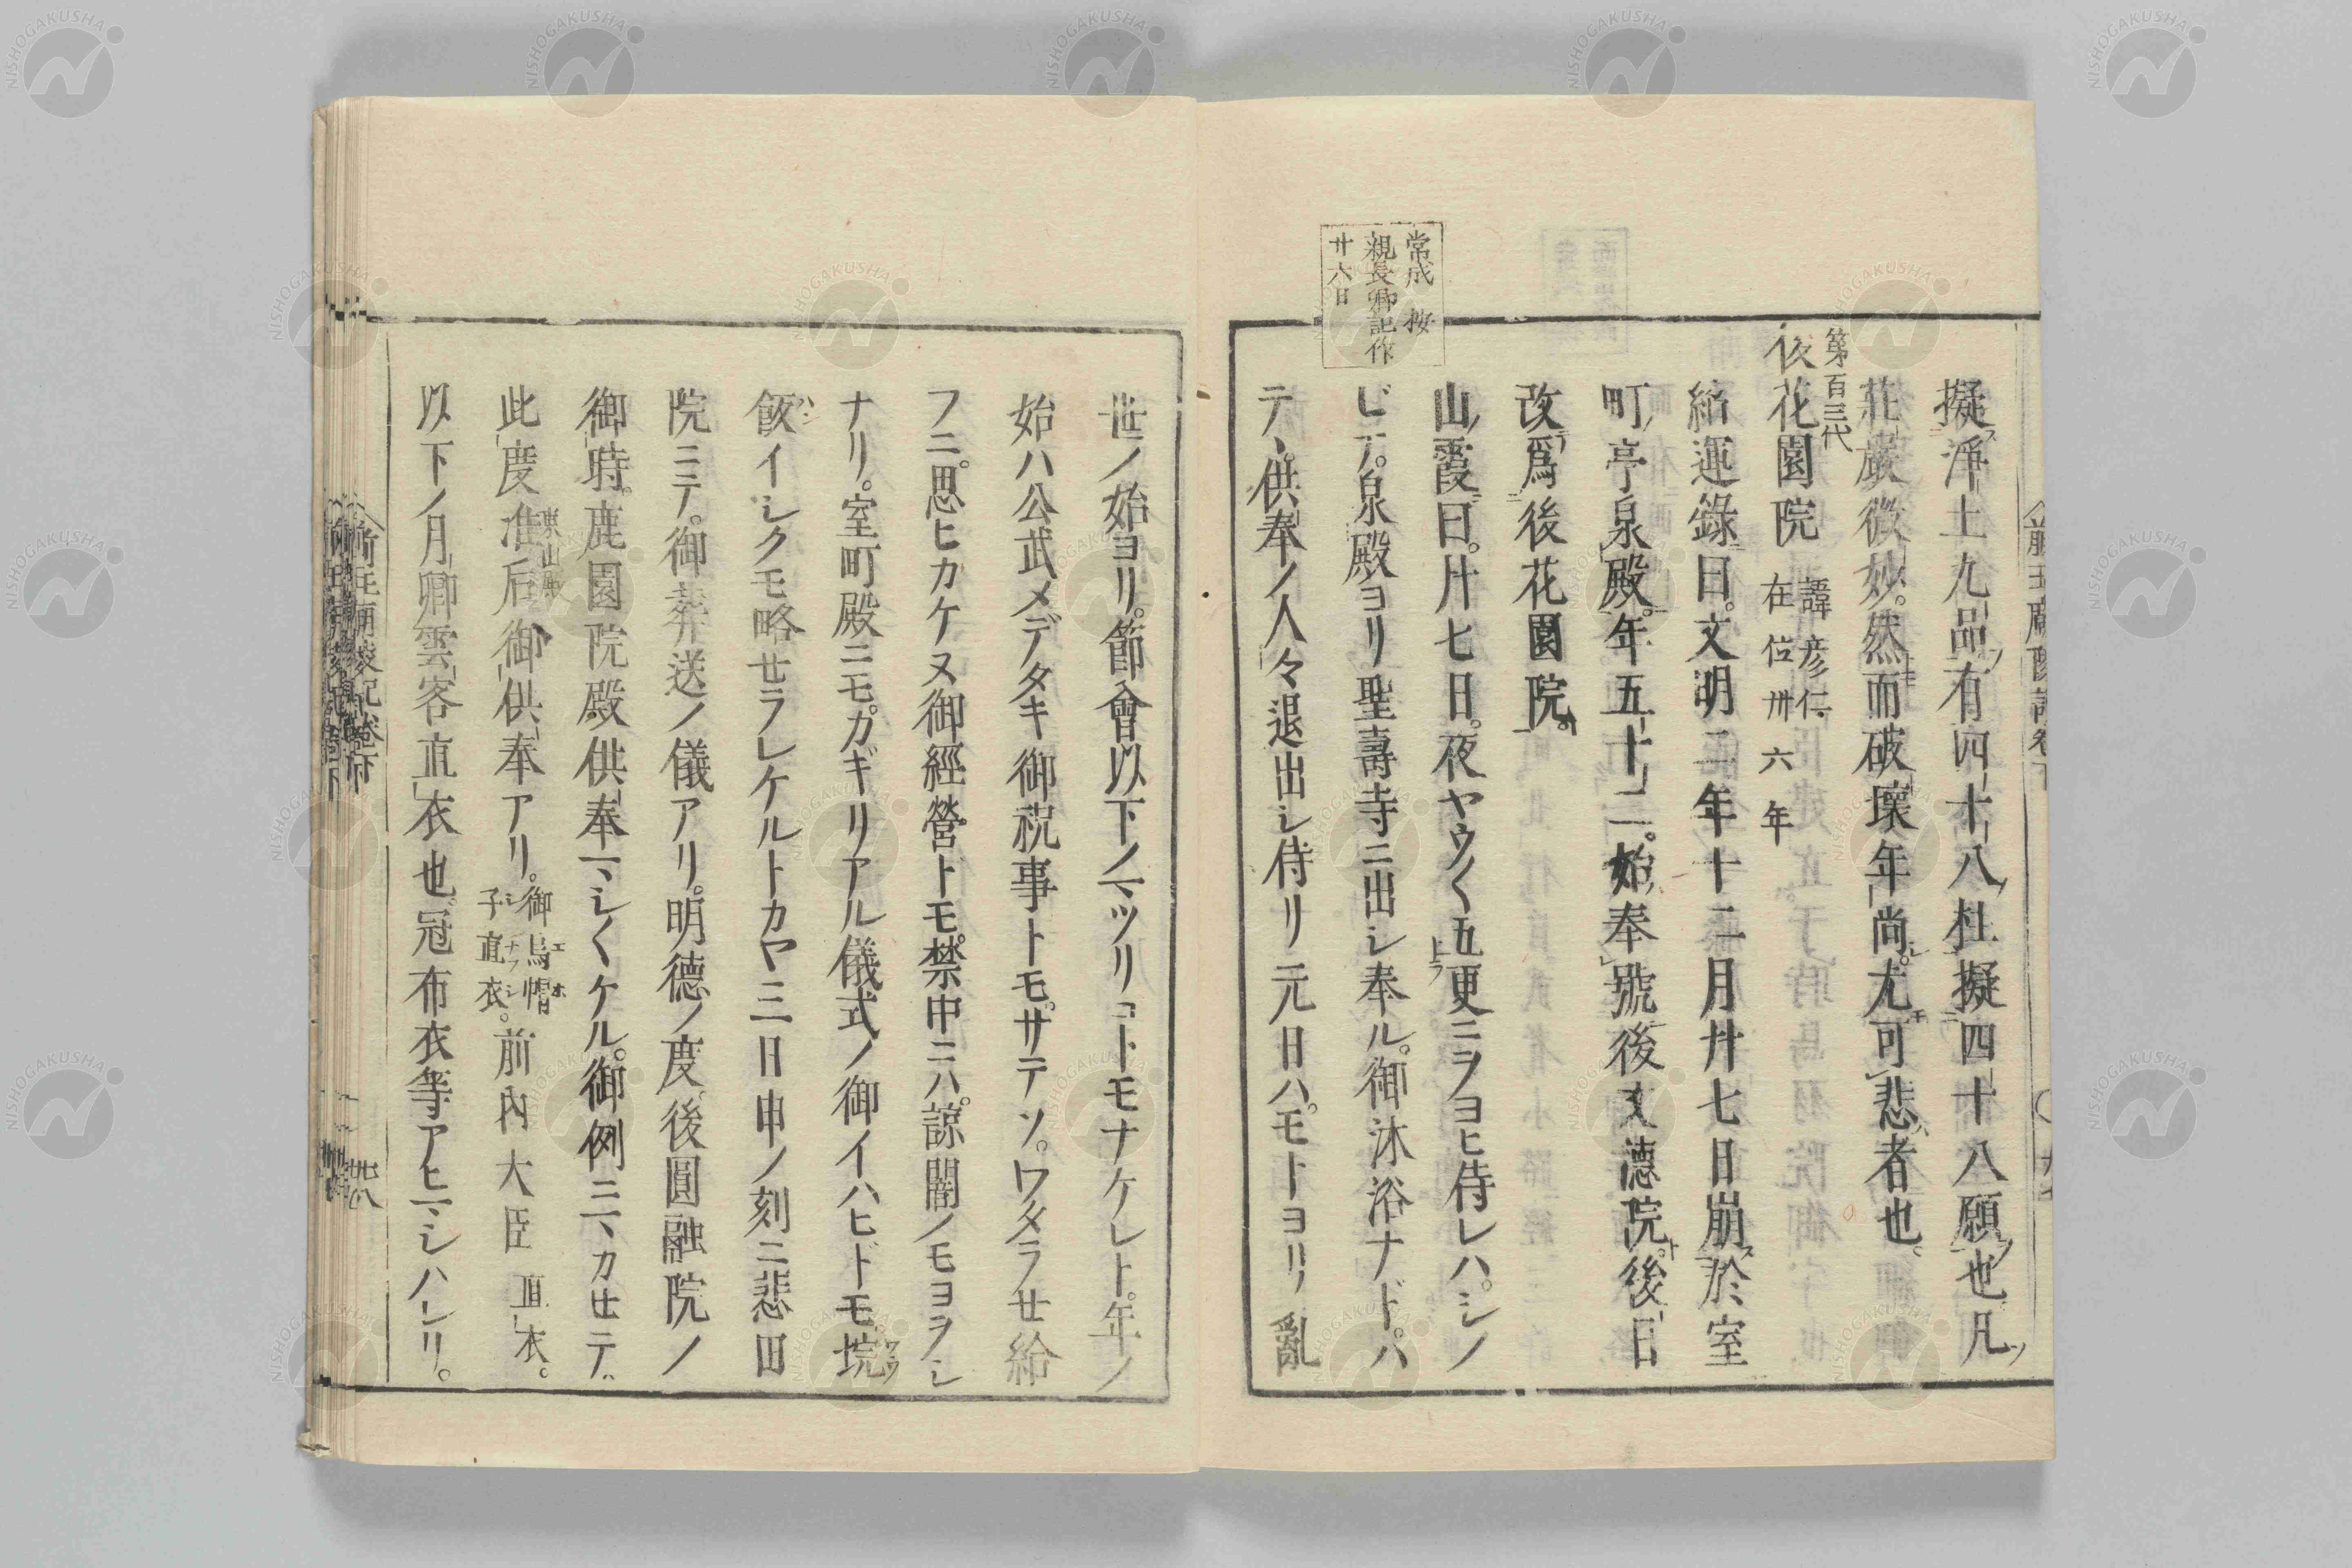 擬浄土九品有四十八柱擬四十八願也凡
荘嚴微妙。然而破壊年尚。尤可悲者也
第百三代
後花園院 諱彦仁
在位卅六年
紹運録曰。文明二年十二月廿七日崩於室
町亭泉殿。年五十二。始奉號後文徳院。後日
改爲後花園院。
常成按
親長卿記作
廿六日
山霞曰。廿七日。夜ヤウ〱五更ニヲヨヒ侍レハ。シノ
ビテ。泉殿ヨリ聖壽寺ニ出シ奉ル。御沐浴ナドハ
テヽ。供奉ノ人々退出シ侍リ元日ハ。モトヨリ亂
世ノ始ヨリ。節會以下ノマツリコトモナケレト。年ノ
始ハ公武メデタキ御祝事トモ。サテソ。ワタラセ給
フニ。思ヒカケヌ御經營トモ。禁中ニハ。諒闇ノモヨヲシ
ナリ。室町殿ニモ。カギリアル儀式ノ御イハヒドモ。
飯イシクモ略セラレケルトカヤ三日申ノ刻ニ悲田
院ニテ。御葬送ノ儀アリ。明徳ノ度。後圓融院ノ
御時。鹿園院殿供奉マシ〱ケル。御例ニマカセテ。
此度准后御供奉アリ。御烏帽
子直衣。前内大臣 直衣。
東山殿
以下ノ月卿雲客直衣也。冠布衣等アヒマシハレリ。
前王廟陵記卷下
廿八
NISHOGAKUSHA